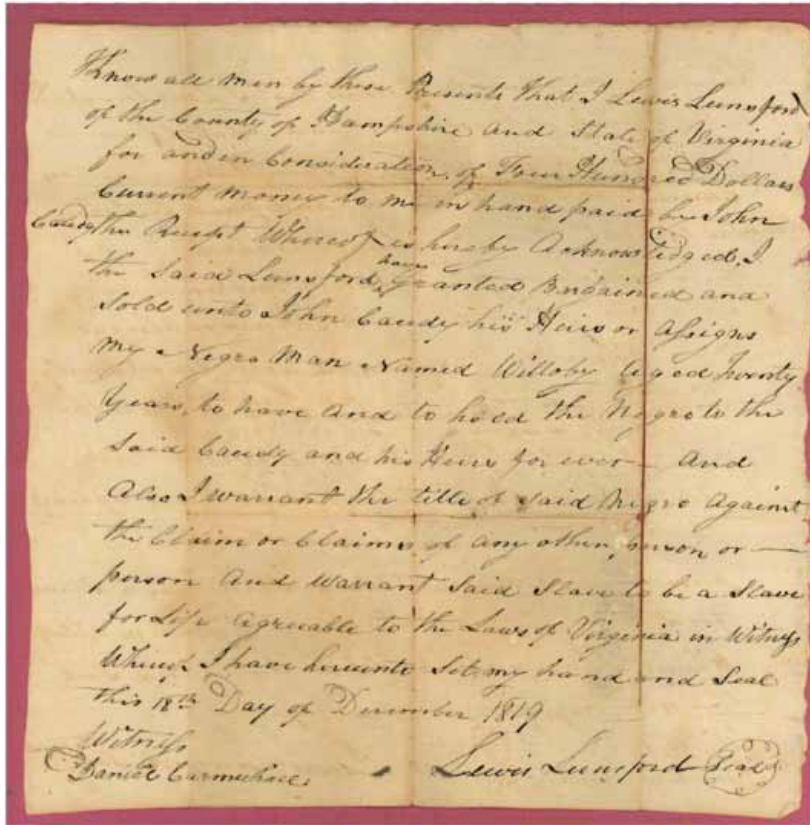 Know all men by these Presents That I Lewis Lunsford
of the County of Hampshire and State of Virginia
for and in Consideration of Four Hundred Dollars
Current money to me in hand paid by John
Caudy the Receipt Whereof is hereby Acknowledged, I
the said Lunsford have granted Bargained and
Sold unto John Caudy his Heirs or Assigns
my Negro Man Named Willoby aged Twenty
Years, to have And to hold the Negro to the
Said Caudy and his Heirs for ever — And
Also I warrant the title of said Negro Against
the Claim or Claims of any other person or —
person And Warrant Said Slave to be a Slave
for Life agreeable to the Laws of Virginia in Witness
Whereof I have hereunto Set my hand and Seal
this 18th Day of December 1819
Witness
Daniel Carmichael Lewis Lunsford Seal